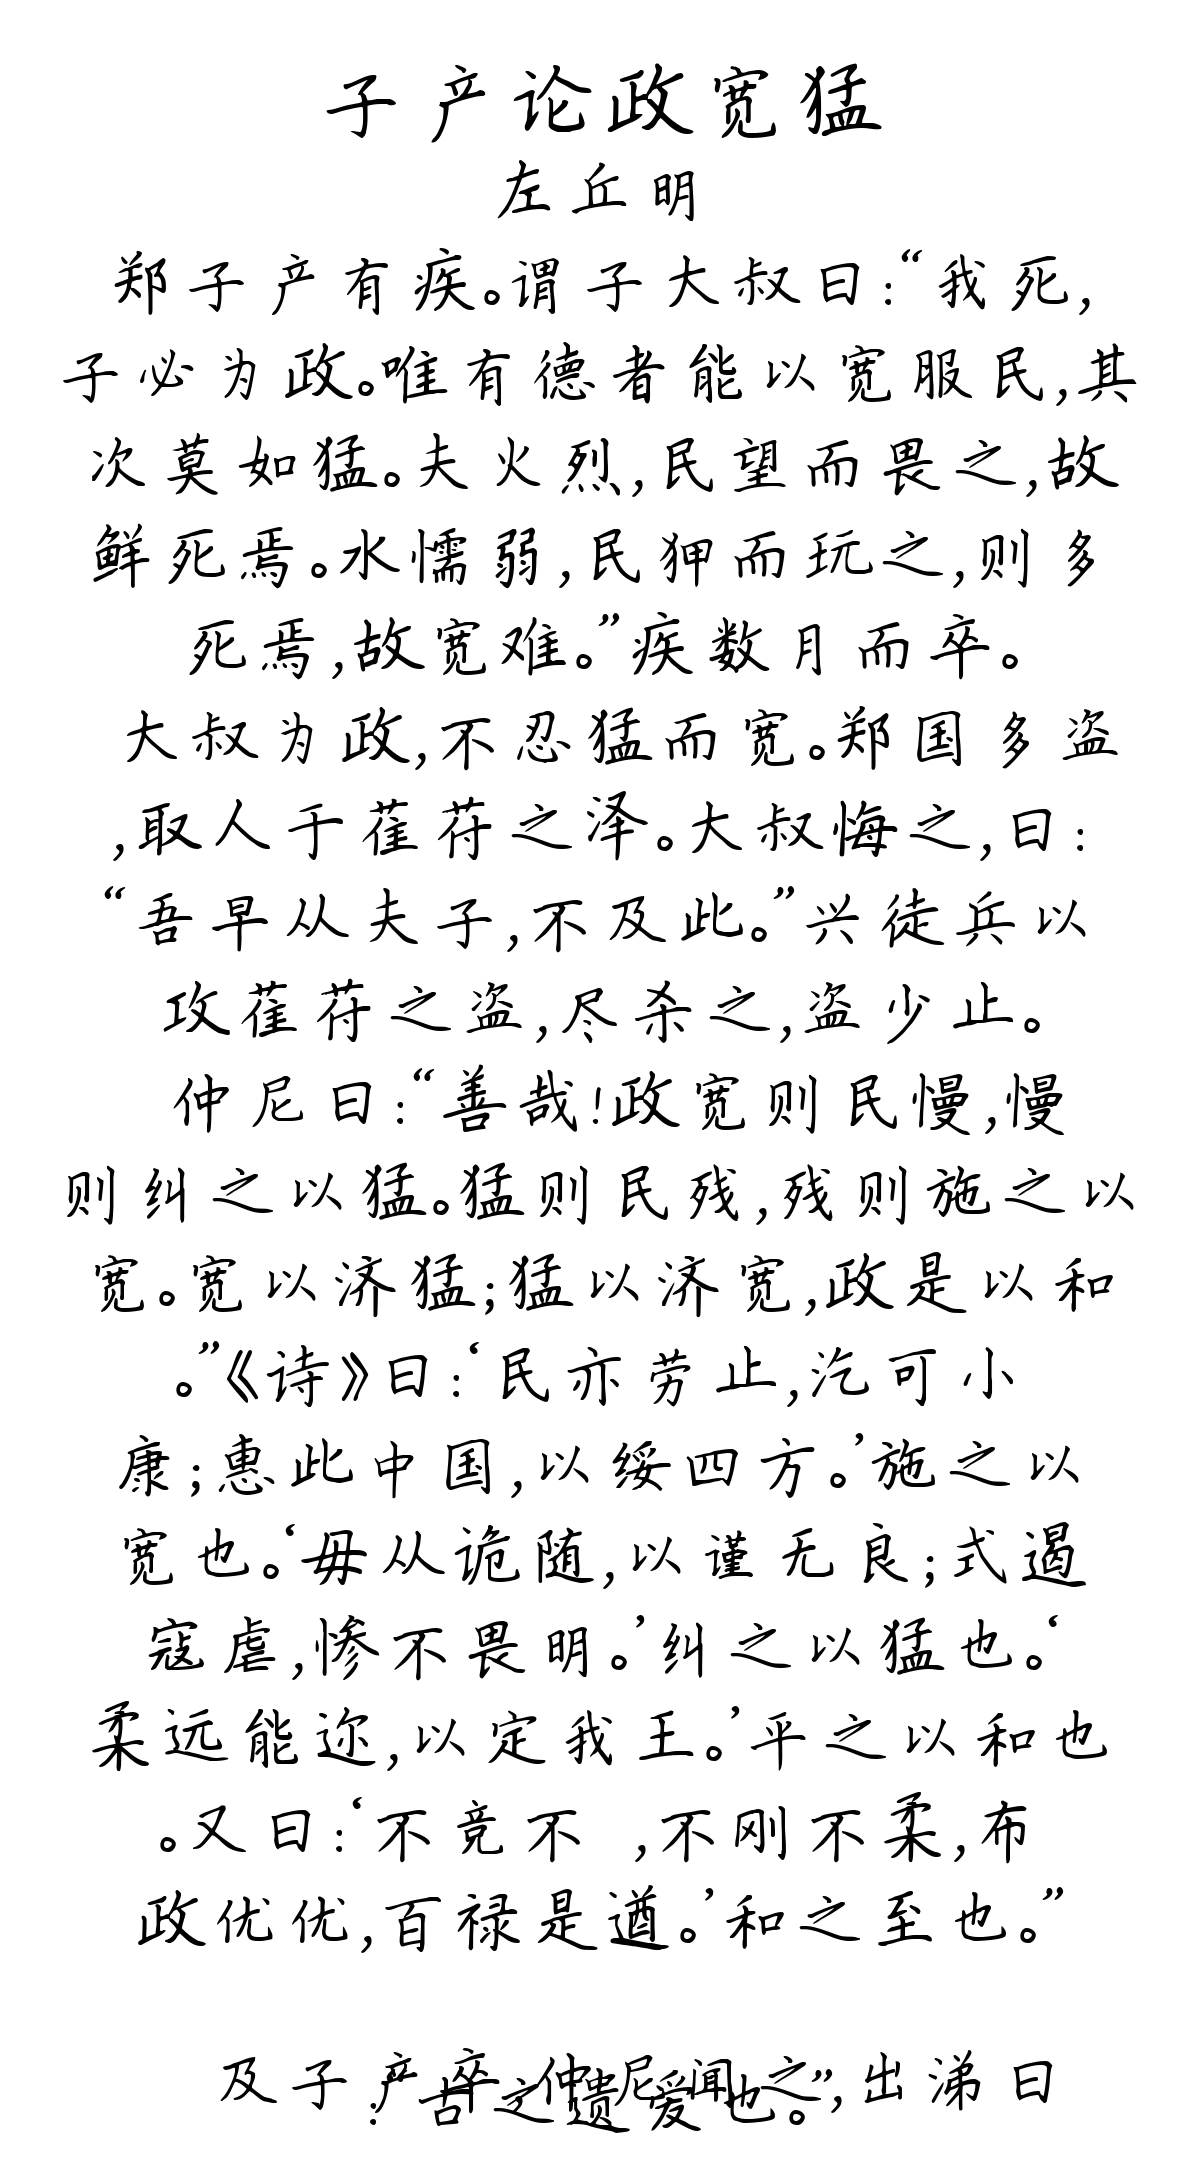 子产论政宽猛
左丘明
郑子产有疾。谓子大叔曰:“我死,
子必为政。唯有德者能以宽服民,其
次莫如猛。夫火烈,民望而畏之,故
鲜死焉。水懦弱,民狎而玩之,则多
死焉,故宽难。”疾数月而卒。
大叔为政,不忍猛而宽。郑国多盗
,取人于萑苻之泽。大叔悔之,曰:
“吾早从夫子,不及此。”兴徒兵以
攻萑苻之盗,尽杀之,盗少止。
仲尼曰:“善哉!政宽则民慢,慢
则纠之以猛。猛则民残,残则施之以
宽。宽以济猛;猛以济宽,政是以和
。”《诗》曰:‘民亦劳止,汔可小
康;惠此中国,以绥四方。’施之以
宽也。‘毋从诡随,以谨无良;式遏
寇虐,惨不畏明。’纠之以猛也。‘
柔远能迩,以定我王。’平之以和也
。又曰:‘不竞不 ,不刚不柔,布
政优优,百禄是遒。’和之至也。”
及子产卒,仲尼闻之,出涕曰
:“古之遗爱也。”